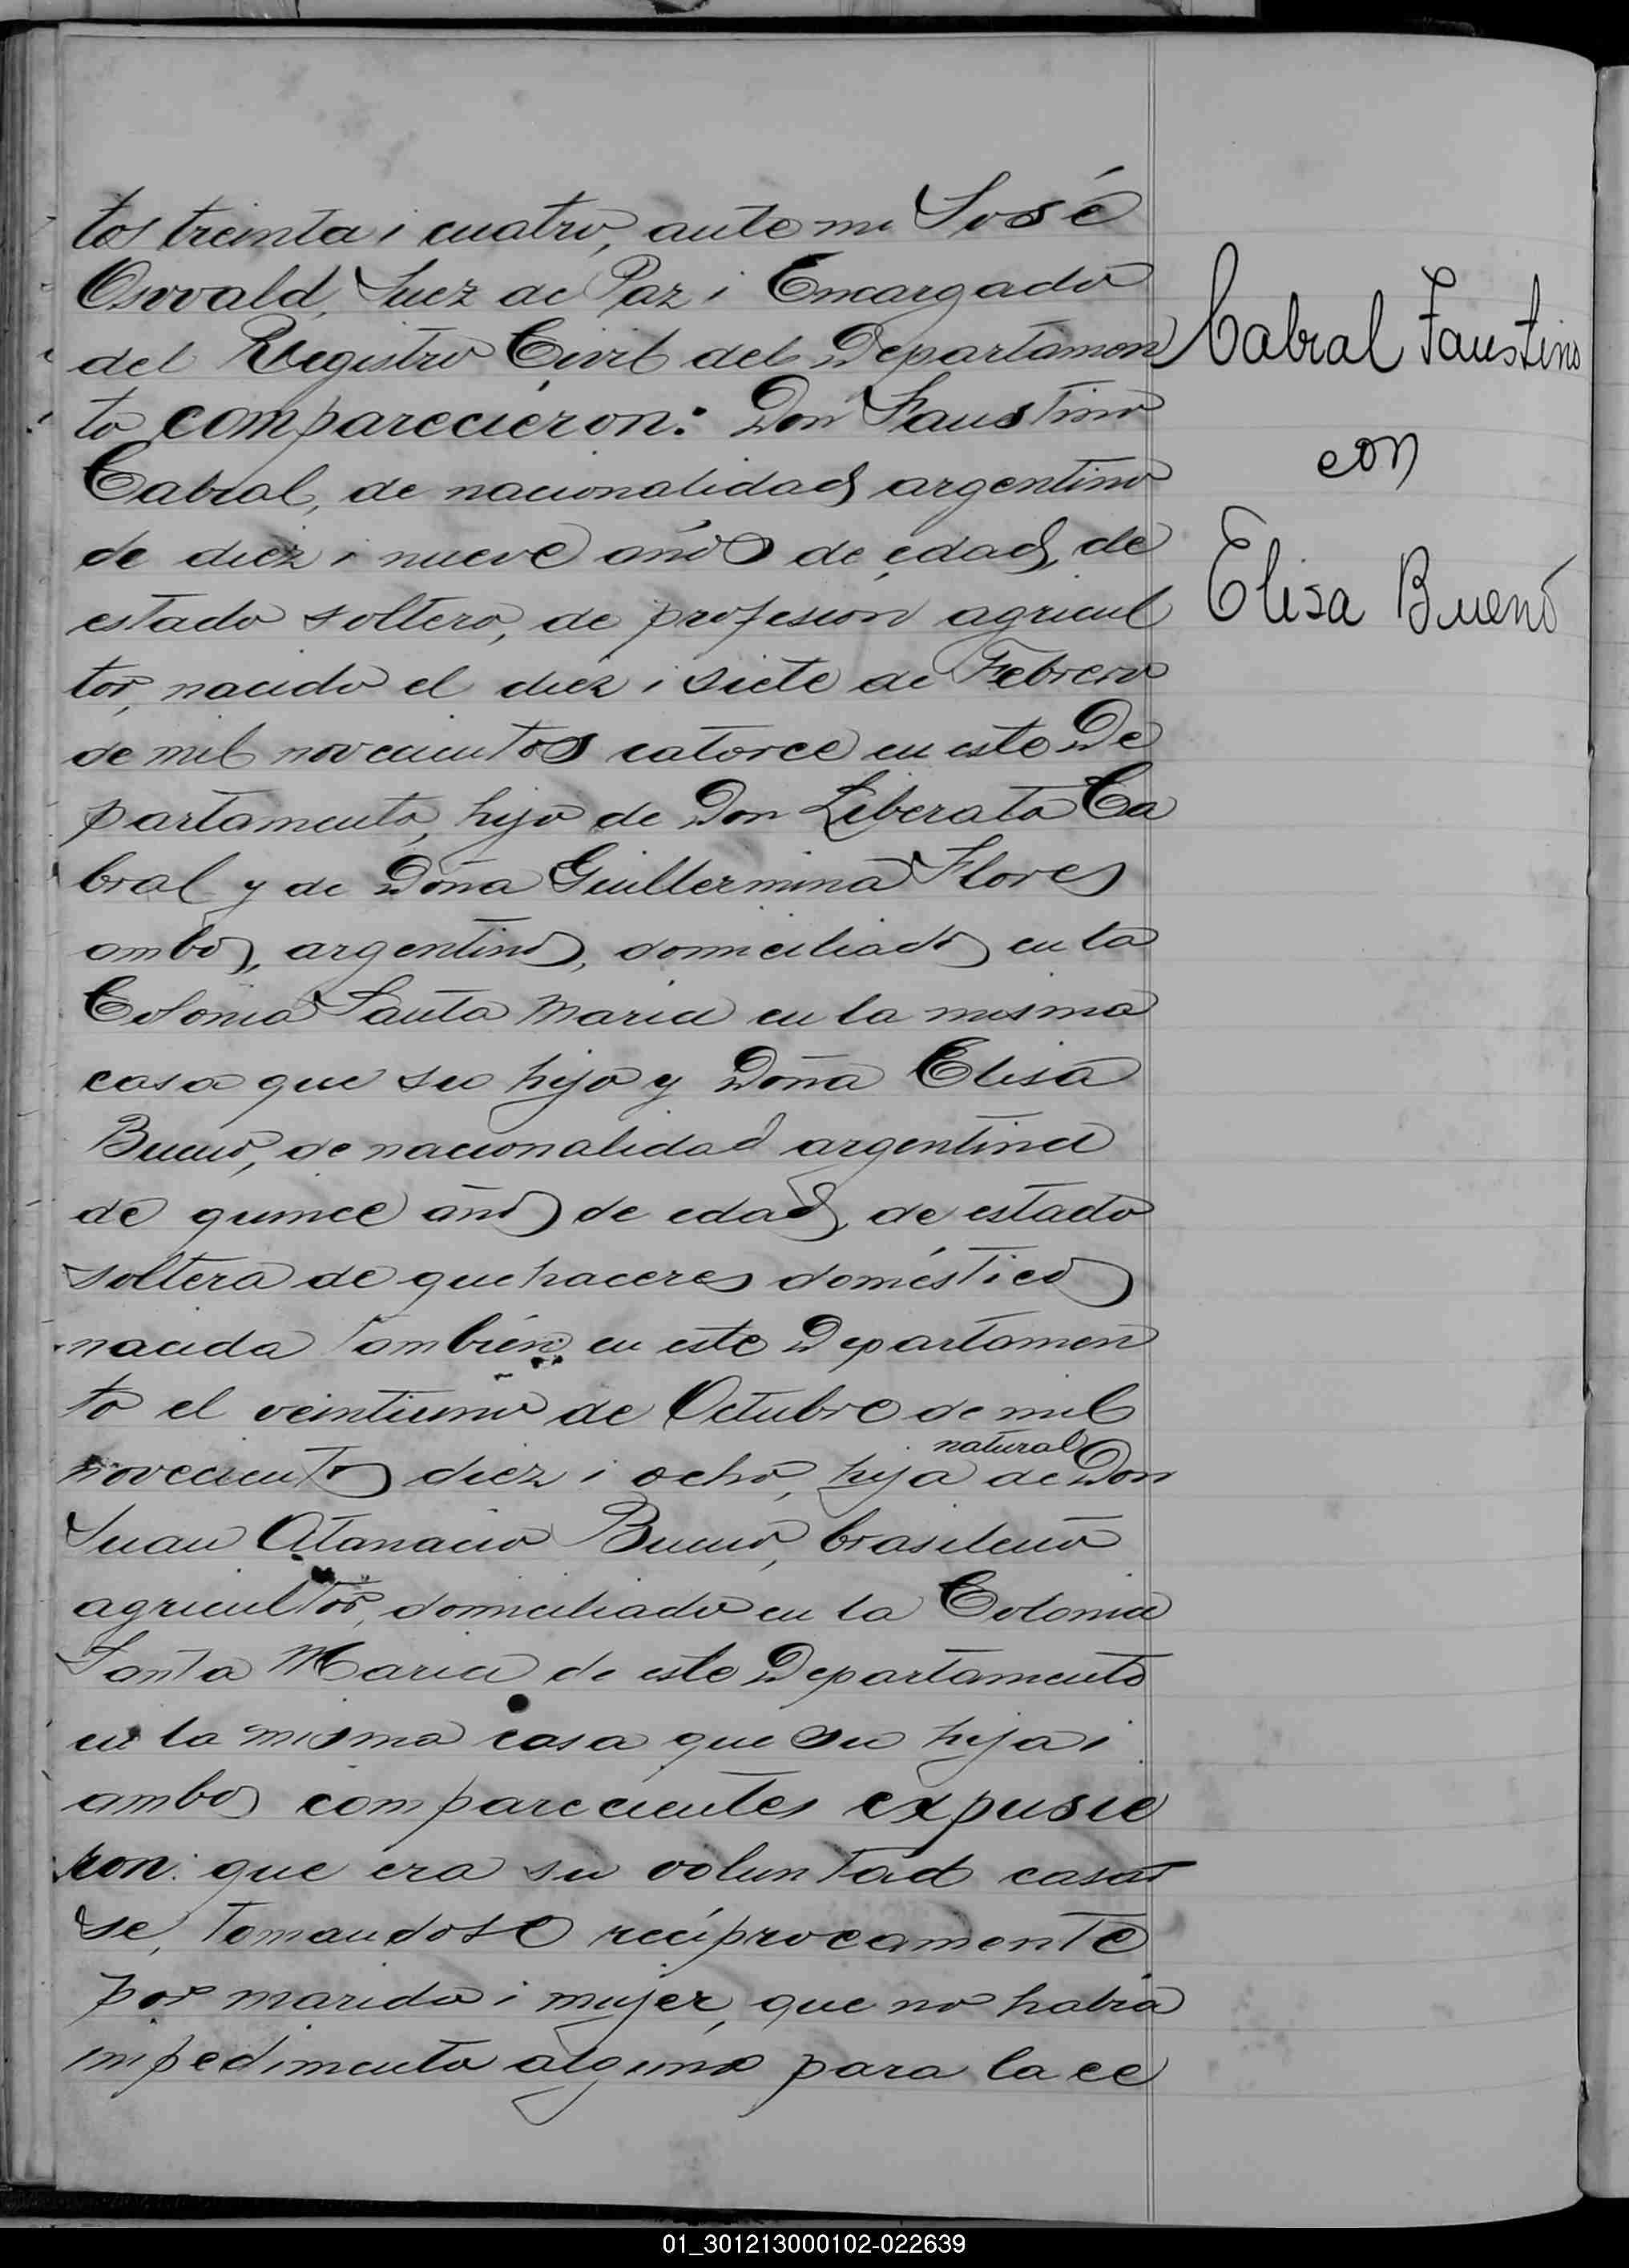 tos treinta i cuatro, ante mi José
Osvvald, Juez de Paz i Encargado
del Registro Civil del Departamen
to comparecieron: Don Faustino
Cabral, de nacionalidad argentino
de diez i nueve años de edad, de
estado soltero, de profesion agricul
tor, nacido el diez i siete de Febrero
de mil novecientos catorce en este De
partamento, hijo de Don Liberato Ca
bral y de Doña Guillermina Flores
ambos, argentinos, domiciliados en la
Colonia Santa Maria en la misma
casa que su hijo y Doña Elisa
Bueno, de nacionalidad argentina
de quince años de edad, de estado
soltera de quehaceres domésticos
nacida también en este Departamen
to el veintiuno de Octubre de mil
natural
novecientos diez i ocho, hija de Don
Juan Atanacio Bueno, brasileño
agricultor, domiciliado en la Colonia
Santa Maria de este Departamento
en la misma casa que su hija i
ambos comparecientes expusie
ron: que era su voluntad casar
se, tomandose recíprocamente
por marido i mujer, que no habia
impedimento alguno para la ce
Cabral Faustino
con
Elisa Bueno
01_301213000102-022639